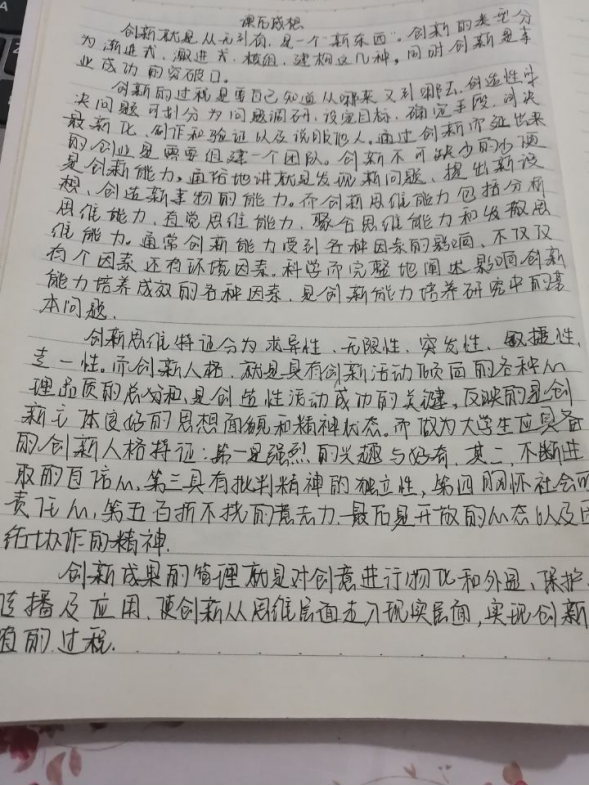 课后感想
创新就是从无到有,是一个"新东西"。创新的类型分
为渐进式、激进式、模组、建构这几种。同时创新是事
业成功的突破口。
创新的过程是要自己知道从哪来又到哪去,创造性解
决问题可划分为问题调研、设定目标、确定手段、
最新化、制作和验证以及说服他人。通过创新衍生出来
的创业是需要组建一个团队。创新不可缺少的
是创新能力。通俗地讲就是发现新问题、提出新设
想、创造新事物的能力。而创新思维能力包括分析
思维能力、直觉思维能力、聚合思维能力和发散思
维能力。通常创新能力受到各种因素的影响、不仅仅
有个因素还有环境因素。科学而完整地阐述影响创新
能力培养成效的各种因素,是创新能力培养研究中的基
本问题.
创新思维特证分为求异性、无限性、突发性、敏捷性、
专一性。而创新人格,就是具有创新活动倾向的各种心
理品质的总和,是创造性活动成功的关键,反映的是创
新主体良好的思想面貌和精神状态。而做为大学生应具备
的创新人格特证:第一是强烈的兴趣与好奇,其二,不断进
取的自信心、第三具有批判精神的独立性,第四胸怀社会的
责任心,第五百折不挠的意志力.最后是开放的心态以及团
结协作的精神.
创新成果的管理就是对创意进行物化和外显、保护、
传播及应用、使创新从思维层面走入现实层面,实现创新
的过程.